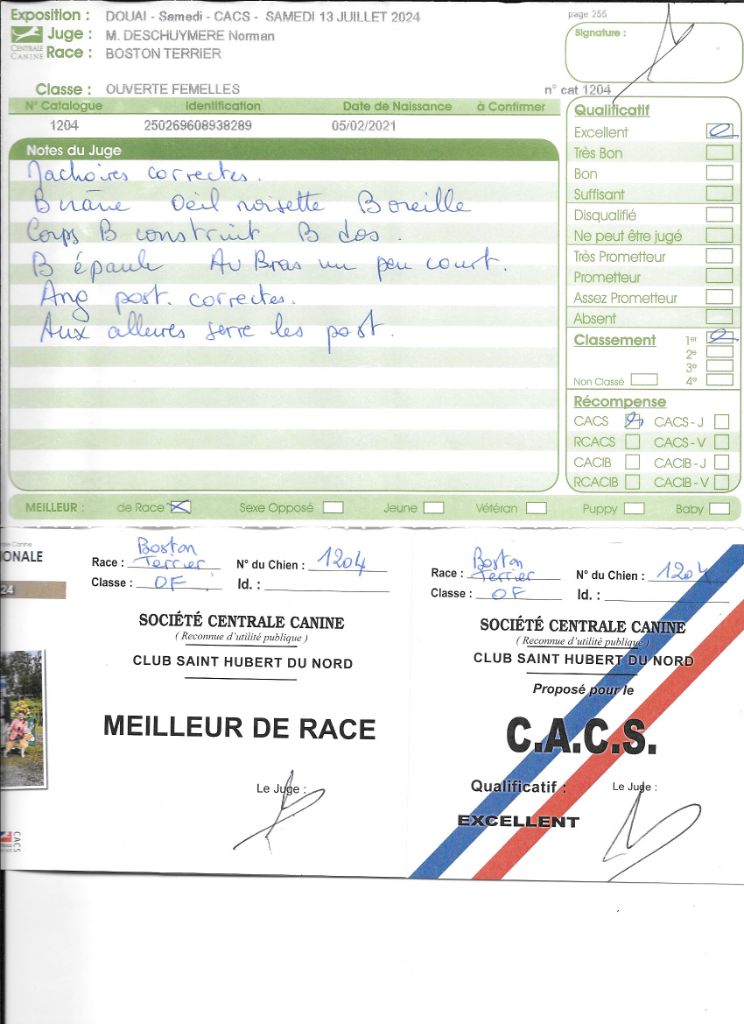 Exposition : DOUAI - Samedi - CACS - SAMEDI 13 JUILLET 2024
page 255
Juge : M. DESCHUYMERE Norman
Signature :
CENTRALE CANINE
Race : BOSTON TERRIER
Classe : OUVERTE FEMELLES
n° cat 1204
N° Catalogue Identification Date de Naissance à Confirmer
1204 250269608938289 05/02/2021
Qualificatif
Excellent
Très Bon
Bon
Suffisant
Disqualifié
Ne peut être jugé
Très Prometteur
Prometteur
Assez Prometteur
Absent
Notes du Juge
Machoires correctes.
B crâne Oeil noisette B oreille
Corps B construit B dos.
B épaule Av Bras un peu court.
Ang post. correctes.
Aux allures serre les post.
Classement 1er
2e
3e
Non Classé 4e
Récompense
CACS CACS - J
RCACS CACS - V
CACIB CACIB - J
RCACIB CACIB - V
MEILLEUR : de Race Sexe Opposé Jeune Vétéran Puppy Baby
Canine
IONALE
24
CACS
Race : Boston Terrier N° du Chien : 1204
Classe : OF Id. :
SOCIÉTÉ CENTRALE CANINE
( Reconnue d'utilité publique )
CLUB SAINT HUBERT DU NORD
MEILLEUR DE RACE
Le Juge :
Race : Boston Terrier N° du Chien : 1204
Classe : OF Id. :
SOCIÉTÉ CENTRALE CANINE
( Reconnue d'utilité publique )
CLUB SAINT HUBERT DU NORD
Proposé pour le
C.A.C.S.
Qualificatif : Le Juge :
EXCELLENT